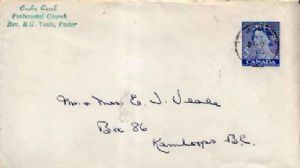 Cache Creek
Pentecostal Church
Rev. H.G. Veale, Pastor
5
CANADA
Mr & Mrs. E. J. Veale
Box 86
Kamloops B.C.